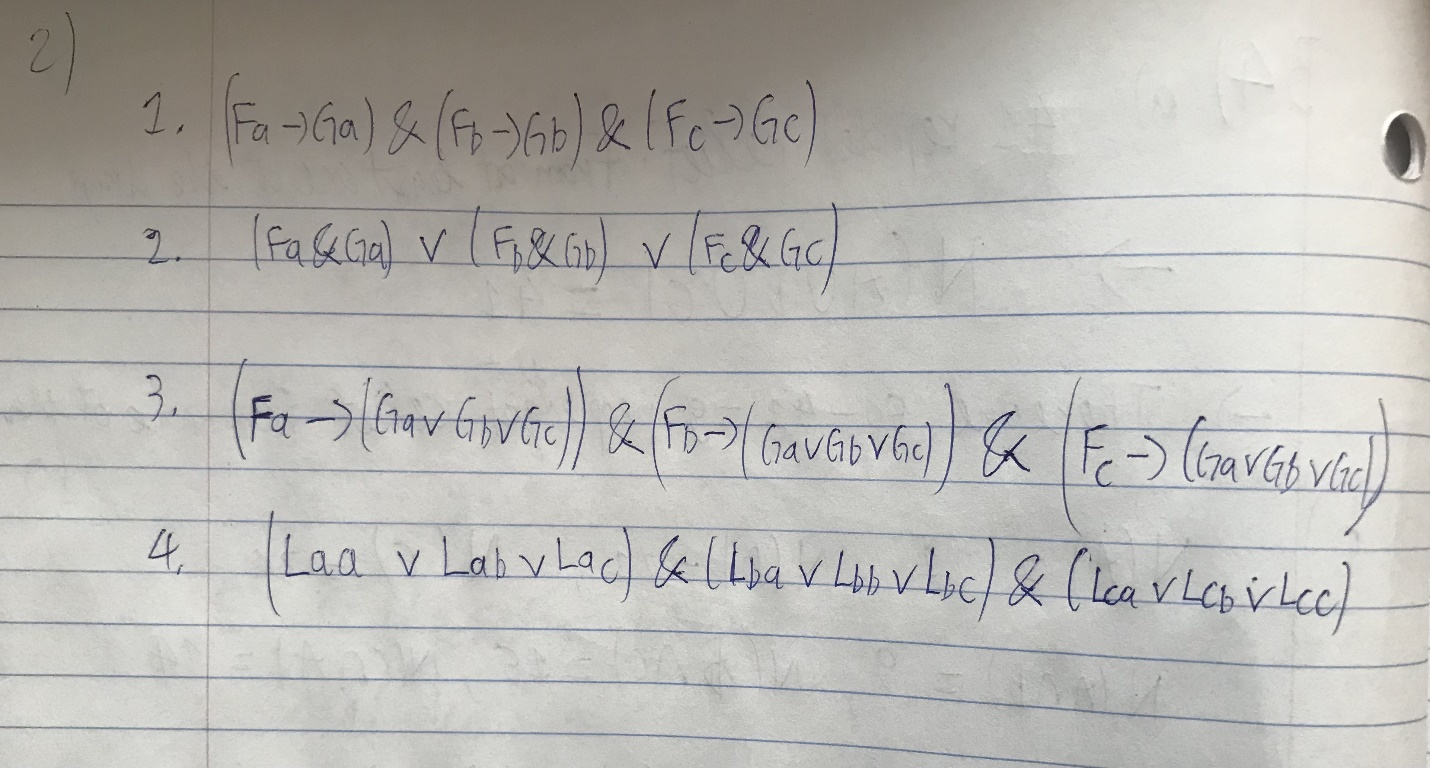 2)
1. (Fa→Ga) & (Fb→Gb) & (Fc→Gc)
2. (Fa&Ga) ∨ (Fb&Gb) ∨ (Fc&Gc)
3. (Fa→(Ga∨Gb∨Gc)) & (Fb→(Ga∨Gb∨Gc)) & (Fc→(Ga∨Gb∨Gc))
4. (Laa ∨ Lab ∨ Lac) & (Lba ∨ Lbb ∨ Lbc) & (Lca ∨ Lcb ∨ Lcc)